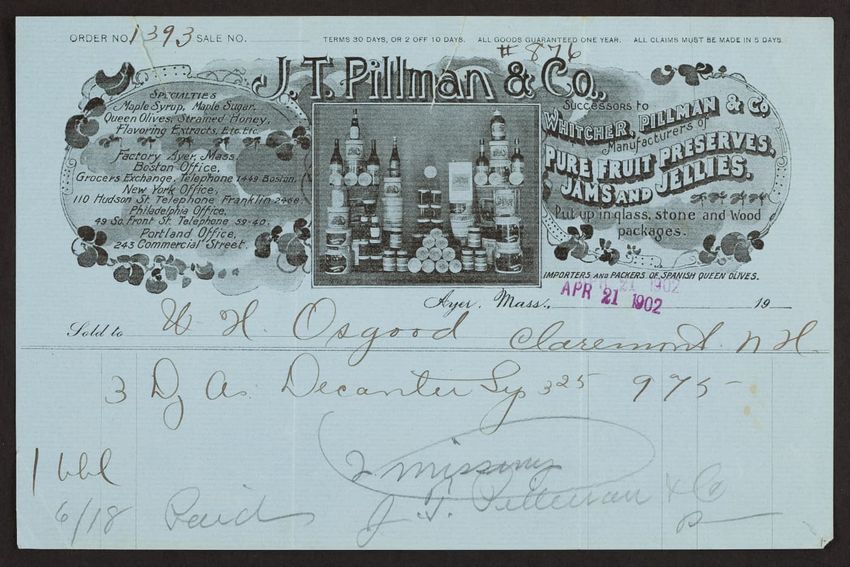 ORDER NO. 1393 SALE NO. TERMS 30 DAYS, OR 2 OFF 10 DAYS. ALL GOODS GUARANTEED ONE YEAR. ALL CLAIMS MUST BE MADE IN 5 DAYS.
# 876
J.T. Pillman & Co.,
SPECIALTIES
Maple Syrup, Maple Sugar,
Queen Olives, Strained Honey,
Flavoring Extracts, Etc. Etc.
Factory Ayer, Mass.
Boston Office,
Grocers Exchange, Telephone 1449 Boston.
New York Office,
110 Hudson St. Telephone Franklin 2468.
Philadelphia Office,
49 So. Front St. Telephone 59-40.
Portland Office,
243 Commercial Street.
Successors to
WHITCHER, PILLMAN & Co.
Manufacturers of
PURE FRUIT PRESERVES,
JAMS AND JELLIES.
Put up in glass, stone and Wood
packages.
IMPORTERS AND PACKERS OF SPANISH QUEEN OLIVES.
Ayer, Mass., APR 21 1902 19
Sold to W. H. Osgood Claremont N.H.
3 Dz As. Decanter Sy 3 25 9 75
1 bbl
2 missing
6/18 Paid J. T. Pillman & Co